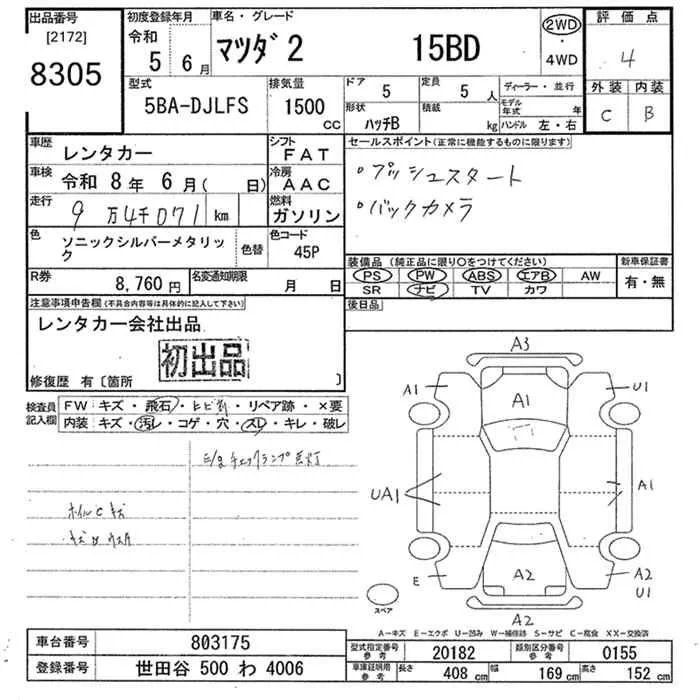 出品番号 初度登録年月 車名・グレード 評価点
[2172] 令和 5年 6月 マツダ2 15BD 2WD・4WD 4
8305 外装 内装
C B
型式 排気量 ドア 5 定員 5人 ディーラー・並行
5BA-DJLFS 1500CC 形状 ハッチB 積載 kg モデル年式 年
ハンドル 左・右
車歴 レンタカー シフト FAT セールスポイント(正常に機能するものに限ります)
車検 令和 8年 6月( 日) 冷房 AAC ・プッシュスタート
走行 9万4千071 km 燃料 ガソリン ・バックカメラ
色 ソニックシルバーメタリック 色替 色コード 45P
装備品(純正品に限り○をつけてください) 新車保証書
R券 8,760円 名変通知期限 月 日 PS PW ABS エアB AW 有・無
SR ナビ TV カワ
注意事項申告欄(不具合内容等は具体的に記入して下さい) 後日品
レンタカー会社出品
初出品
修復歴 有〔箇所 〕
検査員記入欄 FW キズ・飛石・ヒビ割・リペア跡・×要
内装 キズ・汚レ・コゲ・穴・スレ・キレ・破レ
チェックランプ点灯
ホイルCキズ
A3
A1 A1 U1
UA1 A1
E A2 A2
U1
A2
スペア
A-キズ E-エクボ U-凹み W-補修跡 S-サビ C-腐食 XX-交換済
車台番号 803175 型式指定番号 参考 20182 類別区分番号 参考 0155
登録番号 世田谷 500 わ 4006 車庫証明用 参考 長さ 408 cm 幅 169 cm 高さ 152 cm